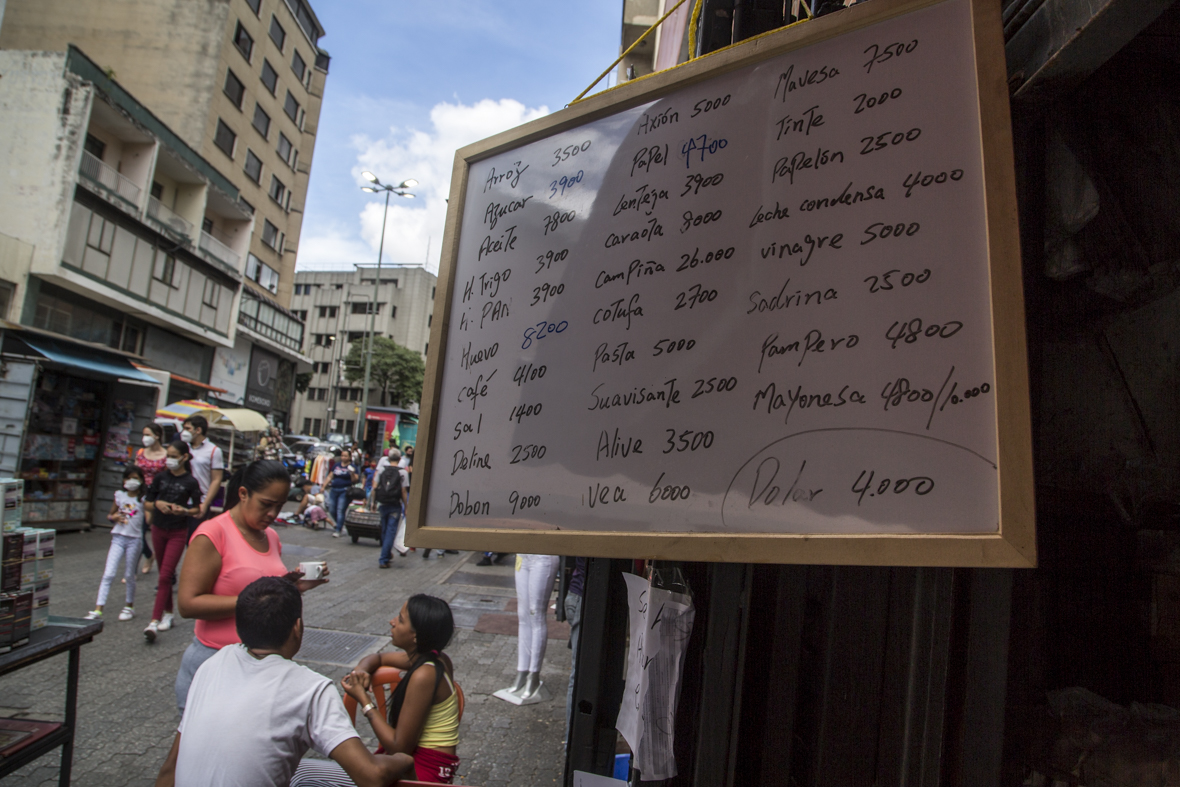 Arroz 3500
Azucar 3900
Aceite 7800
H. Trigo 3900
H. PAN 3900
Huevo 8200
café 4100
sal 1400
Deline 2500
Dobon 9000
Axión 5000
Papel 4700
Lenteja 3900
caraota 8000
Campiña 26.000
cotufa 2700
Pasta 5000
Suavisante 2500
Alive 3500
Vea 6000
Mavesa 7500
Tinte 2000
Papelón 2500
Leche condensa 4000
vinagre 5000
Sadrina 2500
Pampero 4800
Mayonesa 4800/10.000
Dolar 4.000